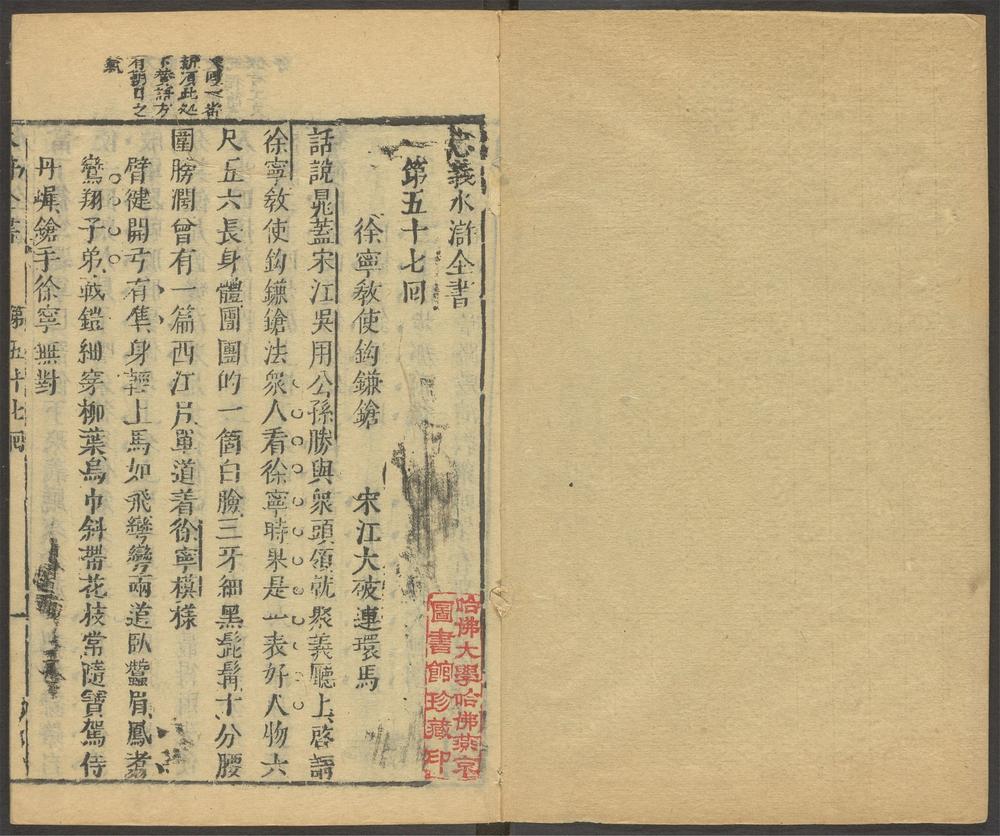 忠義水滸全書
第五十七回
徐寧敎使鈎鐮鎗　宋江大破連環馬
話說晁蓋宋江吳用公孫勝與衆頭領就聚義廳上啓請
徐寧敎使鈎鐮鎗法衆人看徐寧時果是一表好人物六
尺五六長身體團團的一箇白臉三牙細黑髭髯十分腰
圍膀濶曾有一篇西江月單道着徐寧模樣
臂徤開弓有准身輕上馬如飛彎彎兩道臥蠶眉鳳翥
鸞翔子弟戰鎧細穿柳葉烏巾斜帶花枝常隨寶駕侍
丹墀鎗手徐寧無對
下贊語方
氣
全書　第五十七回　一
哈佛大學哈佛燕京
圖書館珍藏印